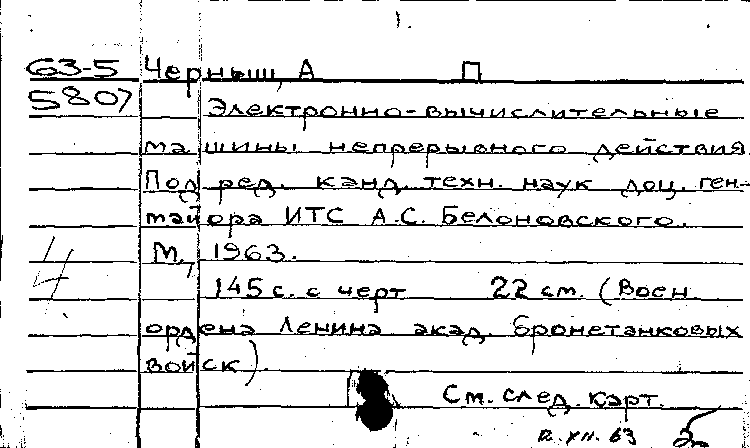 1.
63-5 Черныш, А П
5807 Электронно-вычислительные
машины непрерывного действия
Под ред. канд. техн. наук доц. ген-
майора ИТС А.С. Белоновского.
М., 1963.
4 145 с. с черт 22 см. (Воен.
ордена Ленина акад. бронетанковых
войск).
См. след. карт.
63